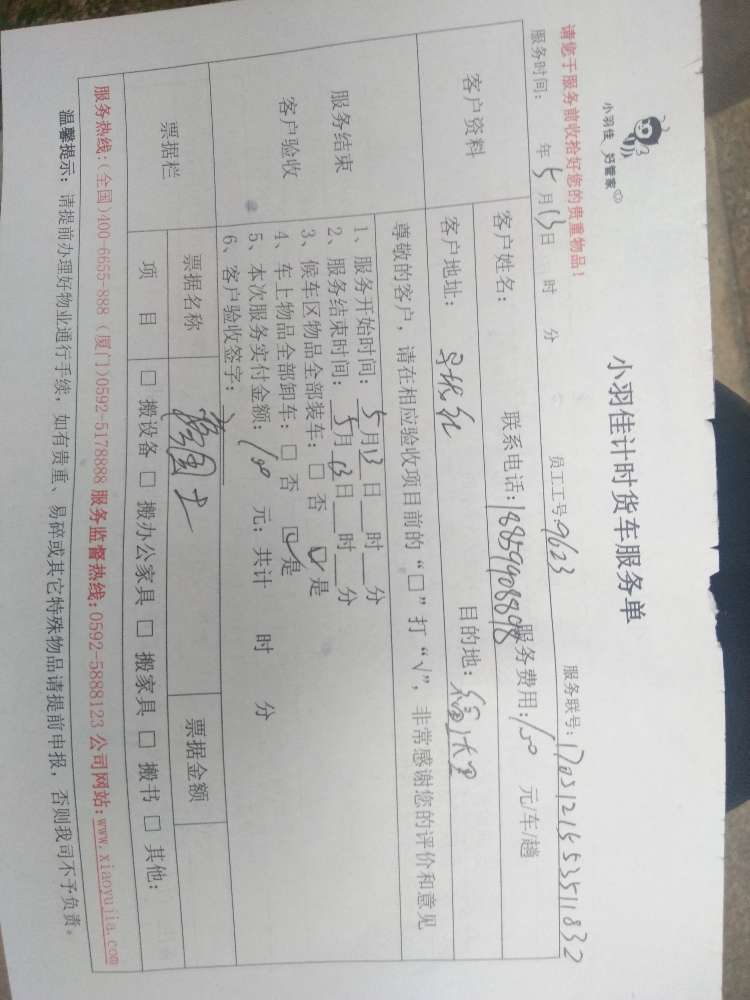 小羽佳 好管家
小羽佳计时货车服务单
请您于服务前收拾好您的贵重物品！
服务时间： 年 5月13日 时 分 员工工号：9623 服务联号：1705121553511832
客户资料
客户姓名： 联系电话：18859908898 服务费用：100 元/车/趟
客户地址： 目的地：
服务结束
客户验收
尊敬的客户，请在相应验收项目前的“□”打“√”，非常感谢您的评价和意见
1、服务开始时间：5月13日__时__分
2、服务结束时间：5月13日__时__分
3、候车区物品全部装车：□ 否 ☑ 是
4、车上物品全部卸车：□ 否 ☑ 是
5、本次服务实付金额：100 元；共计 时 分
6、客户验收签字：
票据栏 票据名称 票据金额
项 目 □ 搬设备 □ 搬办公家具 □ 搬家具 □ 搬书 □ 其他：
服务热线：(全国)400-6655-888 (厦门)0592-5178888 服务监督热线：0592-5888123 公司网站：www.xiaoyujia.com
温馨提示：请提前办理好物业通行手续，如有贵重、易碎或其它特殊物品请提前申报，否则我司不予负责。